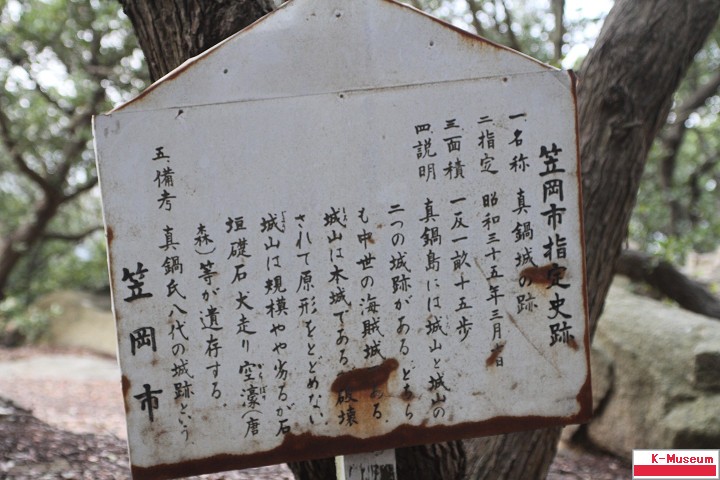 笠岡市指定史跡
一 名称 真鍋城の跡
二 指定 昭和三十五年三月 日
三 面積 一反一畝十五歩
四 説明 真鍋島には城山と城山の
二つの城跡がある どちら
も中世の海賊城 ある
城山は本城である 破壊
されて原形をとどめない
城山は規模やや劣るが石
垣 礎石 犬走り 空濠(唐
森)等が遺存する
五 備考 真鍋氏八代の城跡という
笠岡市
K-Museum